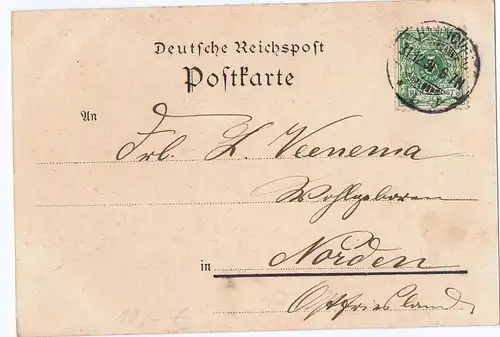 Deutsche Reichspost
Postkarte
An
Frl. L. Veenema
Wohlgeboren
in Norden
Ostfriesland
10.- €